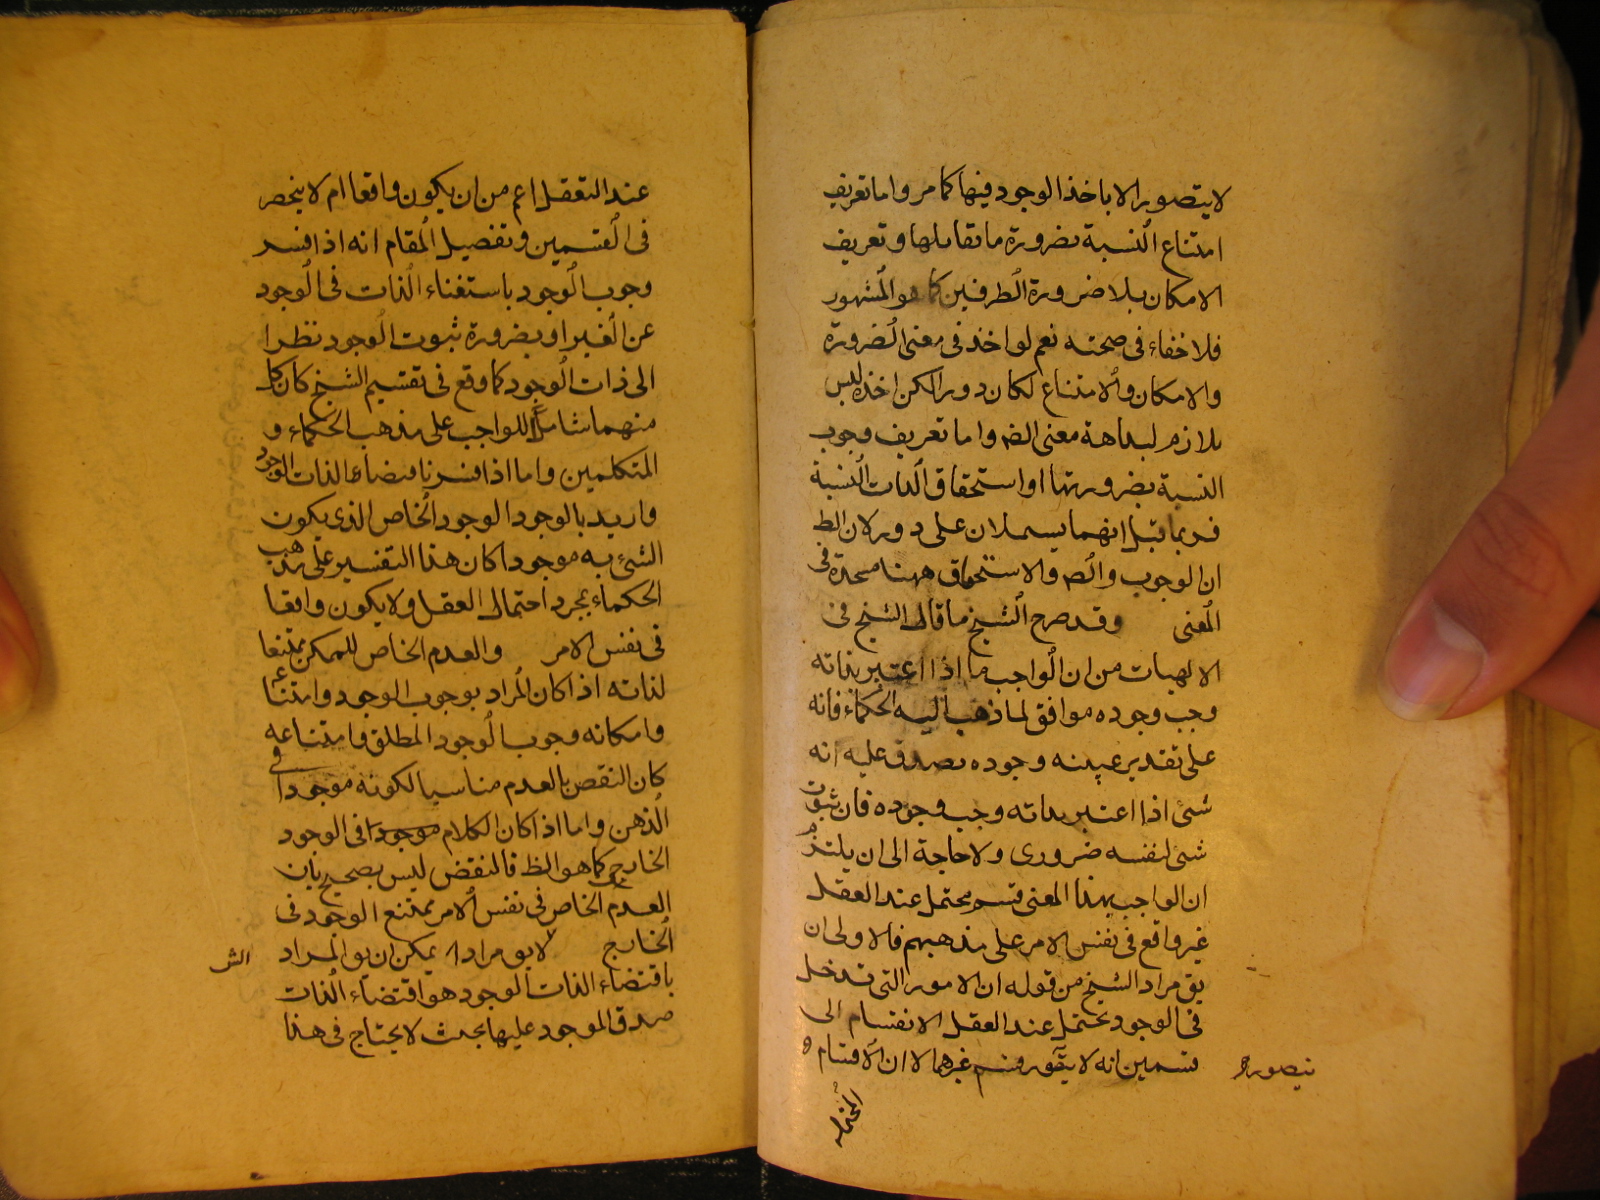 لا يتصور الا باخذ الوجود فيها كما مر واما تعريف
امتناع النسبة بضرورة ما تقابلها وتعريف
الامكان بلا ضرورة الطرفين كما هو المشهور
فلا خفاء فى صحته نعم لو اخذ فى معنى الضرورة
والامكان والامتناع لكان دورا لكن اخذه ليس
بلازم لبداهة معنى الضه واما تعريف وجوب
النسبة بضرورتها او استحقاق الذات النسبة
فربما قيل انهما يشملان على دور لان الظ
ان الوجوب والضه والاستحقاق ههنا متحدة فى
المعنى وقد صرح الشيخ ما قال الشيخ فى
الالهيات من ان الواجب ما اذا اعتبر بذاته
وجب وجوده موافق لما ذهب اليه الحكماء فانه
على تقدير عينية وجوده يصدق عليه انه
شئ اذا اعتبر بذاته وجب وجوده فان ثبوت
شئ لنفسه ضرورى ولا حاجة الى ان يلتزم
ان الواجب بهذا المعنى قسم محتمل عند العقل
غير واقع فى نفس الامر على مذهبهم فالاولى ان
يق مراد الشيخ من قوله ان الامور التى تدخل
فى الوجود يحتمل عند العقل الانقسام الى
قسمين انه لا يتصور قسم غيرهما لا ان الاقسام
يتصور
المحتملة
عند التعقل اعم من ان يكون واقعا ام لا ينحصر
فى القسمين وتفصيل المقام انه اذا فسر
وجوب الوجود باستغناء الذات فى الوجود
عن الغير او بضرورة ثبوت الوجود نظرا
الى ذات الوجود كما وقع فى تقسيم الشيخ كان كل
منهما شاملا للواجب على مذهب الحكماء و
المتكلمين واما اذا فسر باقتضاء الذات الوجود
واريد بالوجود الوجود الخاص الذى يكون
الشئ به موجودا كان هذا التفسير على مذهب
الحكماء بمجرد احتمال العقل ولا يكون واقعا
فى نفس الامر والعدم الخاص للممكن ممتنعا
لذاته اذا كان المراد بوجوب الوجود وامتناعه
وامكانه وجوب الوجود المطلق وامتناعه
كان النقص بالعدم مناسبا لكونه موجودا فى
الذهن واما اذا كان الكلام موجودا فى الوجود
الخارجى كما هو الظ فالنقض ليس بصحيح بان
العدم الخاص فى نفس الامر ممتنع الوجود فى
الخارج لا يق مراد يمكن ان يق المراد
باقتضاء الذات الوجود هو اقتضاء الذات
صدق الموجود عليها بحيث لا يحتاج فى هذا